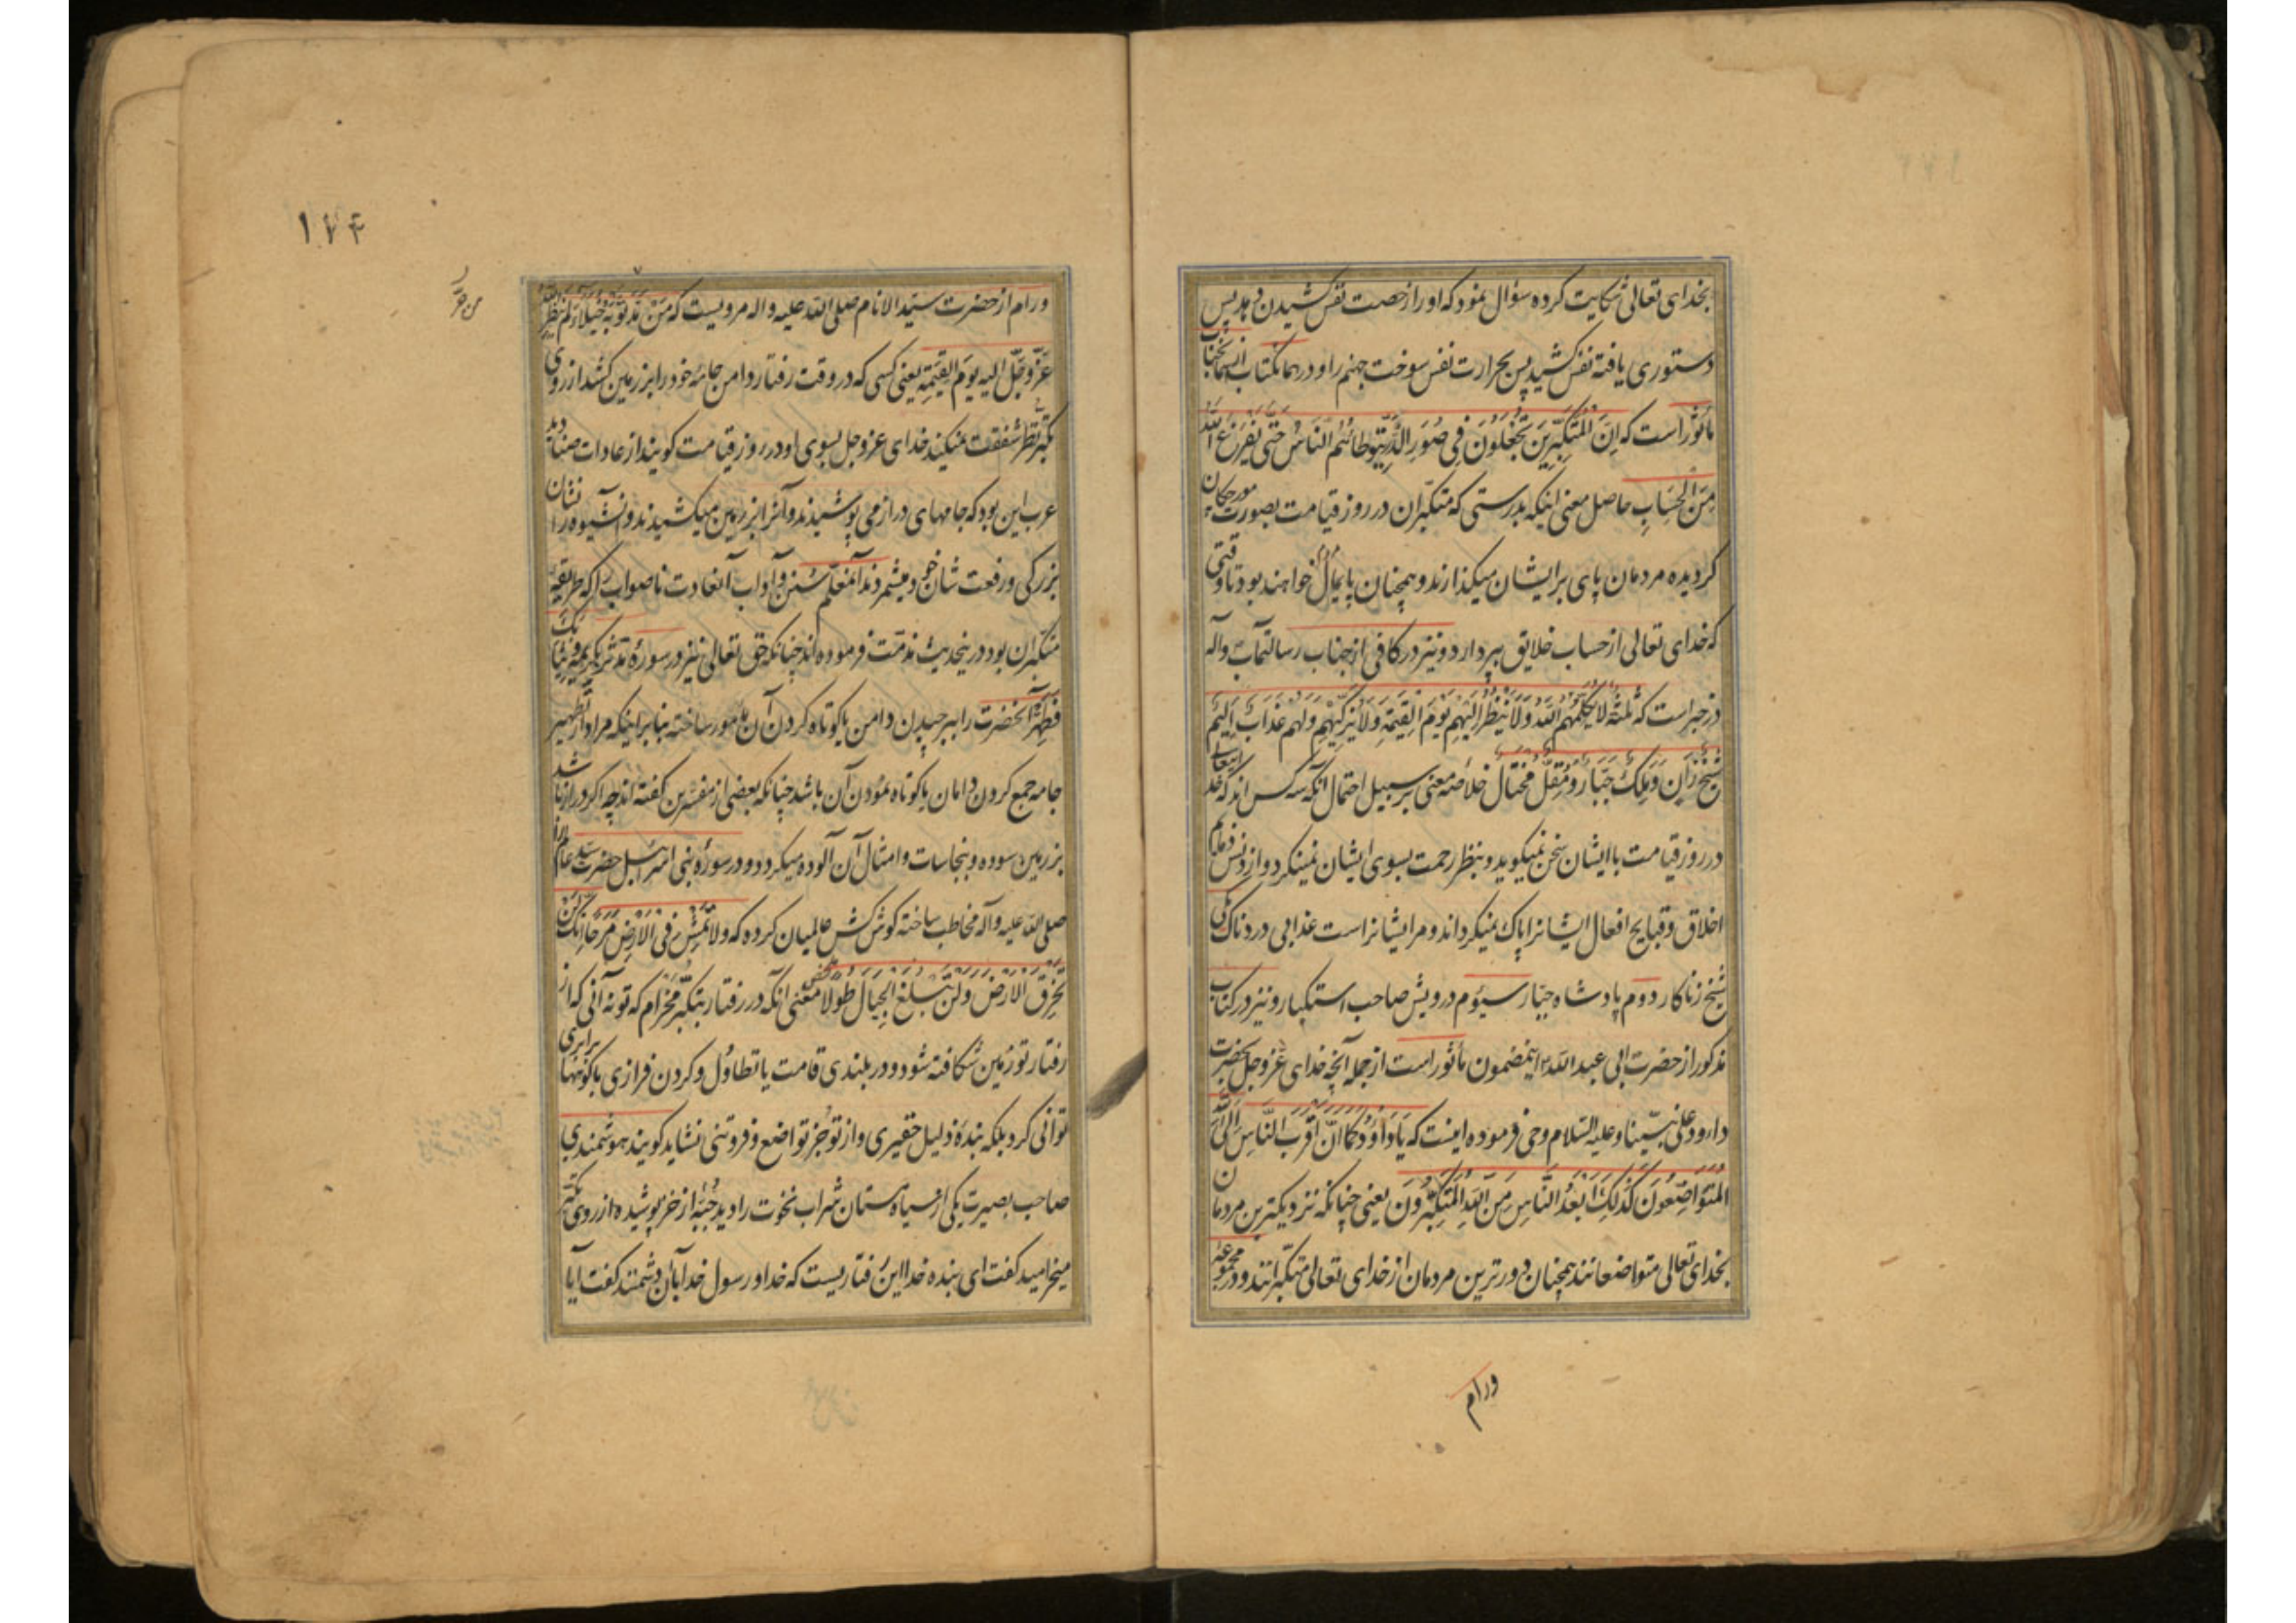 بخدای تعالی شکایت کرده سؤال نمود که او را رخصت نفس کشیدن دهد پس
دستوری یافته نفس کشید پس بحرارت نفس سوخت جهنم را و در همان کتاب از آنجناب
مأثور است که اِنَّ الْمُتَکَبِّرِینَ یُجْعَلُونَ فِی صُوَرِ الذَّرِّ یَتَوَطَّأُهُمُ النَّاسُ حَتّٰی یَفْرَغَ اللّٰهُ
مِنَ الْحِسَابِ حاصل معنی اینکه بدرستی که متکبّران در روز قیامت بصورت مورچکان
کردیده مردمان پای بر ایشان میگذارند و همچنان پایمال خواهند بود تا وقتی
که خدای تعالی از حساب خلایق بپردازد و نیز در کافی از جناب رسالتمآب و آله
در خبر است که ثلثةٌ لا یُکَلِّمُهُمُ اللّٰهُ وَلَا یَنْظُرُ اِلَیْهِمْ یَوْمَ الْقِیٰمَةِ وَلَا یُزَکِّیْهِمْ وَلَهُمْ عَذَابٌ اَلِیْمٌ
شَیْخٌ زَانٍ وَمَلِکٌ جَبَّارٌ وَمُقِلٌّ مُخْتَالٌ خلاصه معنی بر سبیل احتمال آنکه سه کس اند که خدایتعالی
در روز قیامت با ایشان سخن نمیکوید و بنظر رحمت بسوی ایشان نمینکرد و از دنس ذمایم
اخلاق و قبایح افعال ایشانرا پاک نمیکرداند و مر ایشانراست عذابی دردناک یکی
شیخ زناکار دوم پادشاه جبّار سیوم درویش صاحب استکبار و نیز در کتاب
مذکور از حضرت ابی عبد اللّه اینمضمون مأثور است از جمله آنچه خدای عزّ و جل بحضرت
داود علی نبیّنا و علیه السّلام وحی فرموده اینست که یَا دَاوُدُ کَمَا اِنَّ اَقْرَبَ النَّاسِ اِلَی اللّٰهِ
الْمُتَوَاضِعُونَ کَذٰلِکَ اَبْعَدُ النَّاسِ مِنَ اللّٰهِ الْمُتَکَبِّرُونَ یعنی چنانکه نزدیکترین مردمان
بخدای تعالی متواضعانند همچنان دورترین مردمان از خدای تعالی متکبّرانند و در مجموعه
ورام
۱۷۴
ورام از حضرت سیّد الانام صلی اللّه علیه و اله مرویست که مَنْ جَرَّ ثَوْبَهُ خُیَلَاءَ لَمْ یَنْظُرِ اللّٰهُ
من جرّ
عَزَّ وَجَلَّ اِلیه یَومَ القِیٰمَةِ یعنی کسی که در وقت رفتار دامن جامه خود را بر زمین کشد از روی
تکبّر نظر شفقت نمیکند خدای عز و جل بسوی او در روز قیامت کویند از عادات صنادید
عرب این بود که جامهای دراز می پوشیدند و آنرا بر زمین میکشیدند و آنشیوه را نشان
بزرکی و رفعت شان خود میشمردند آنمعلّم سُنن و آداب آنعادت ناصواب را که طریقه
متکبّران بود در ینحدیث مذمّت فرموده اند چنانکه حق تعالی نیز در سورهٔ مدّثر بکریمه وَثِیَابَکَ
فَطَهِّرْ آنحضرت را ببرچیدن دامن یا کوتاه کردن آن مامور ساخته بنا بر اینکه مراد از تطهیر
جامه جمع کردن دامان یا کوتاه نمودن آن باشد چنانکه بعضی از مفسّرین کفته اند چه اکر دراز باشد
بر زمین سوده و بنجاسات و امثال آن آلوده میکردد و در سورهٔ بنی اسرائیل حضرت سیّد عالم را
صلی اللّه علیه و آله مخاطب ساخته کوش کش عالمیان کرده که وَلَا تَمْشِ فِی الْاَرْضِ مَرَحًا اِنَّکَ لَنْ
تَخْرِقَ الْاَرْضَ وَلَنْ تَبْلُغَ الْجِبَالَ طُولًا معنی آنکه در رفتار بتکبّر مخرام که تو نه آنی که از
رفتار تو زمین شکافته شود و در بلندی قامت یا تطاول و کردن فرازی با کوهها برابری
توانی کرد بلکه بندهٔ ذلیل حقیری و از تو جز تواضع و فروتنی نشاید کویند هوشمندی
صاحب بصیرت یکی از سیاه مستان شراب نخوت را دید جُبّه از خز پوشیده از روی تکبّر
میخرامید کفت ای بنده خدا این رفتاریست که خدا و رسول خدا بآن دشمنند کفت آیا